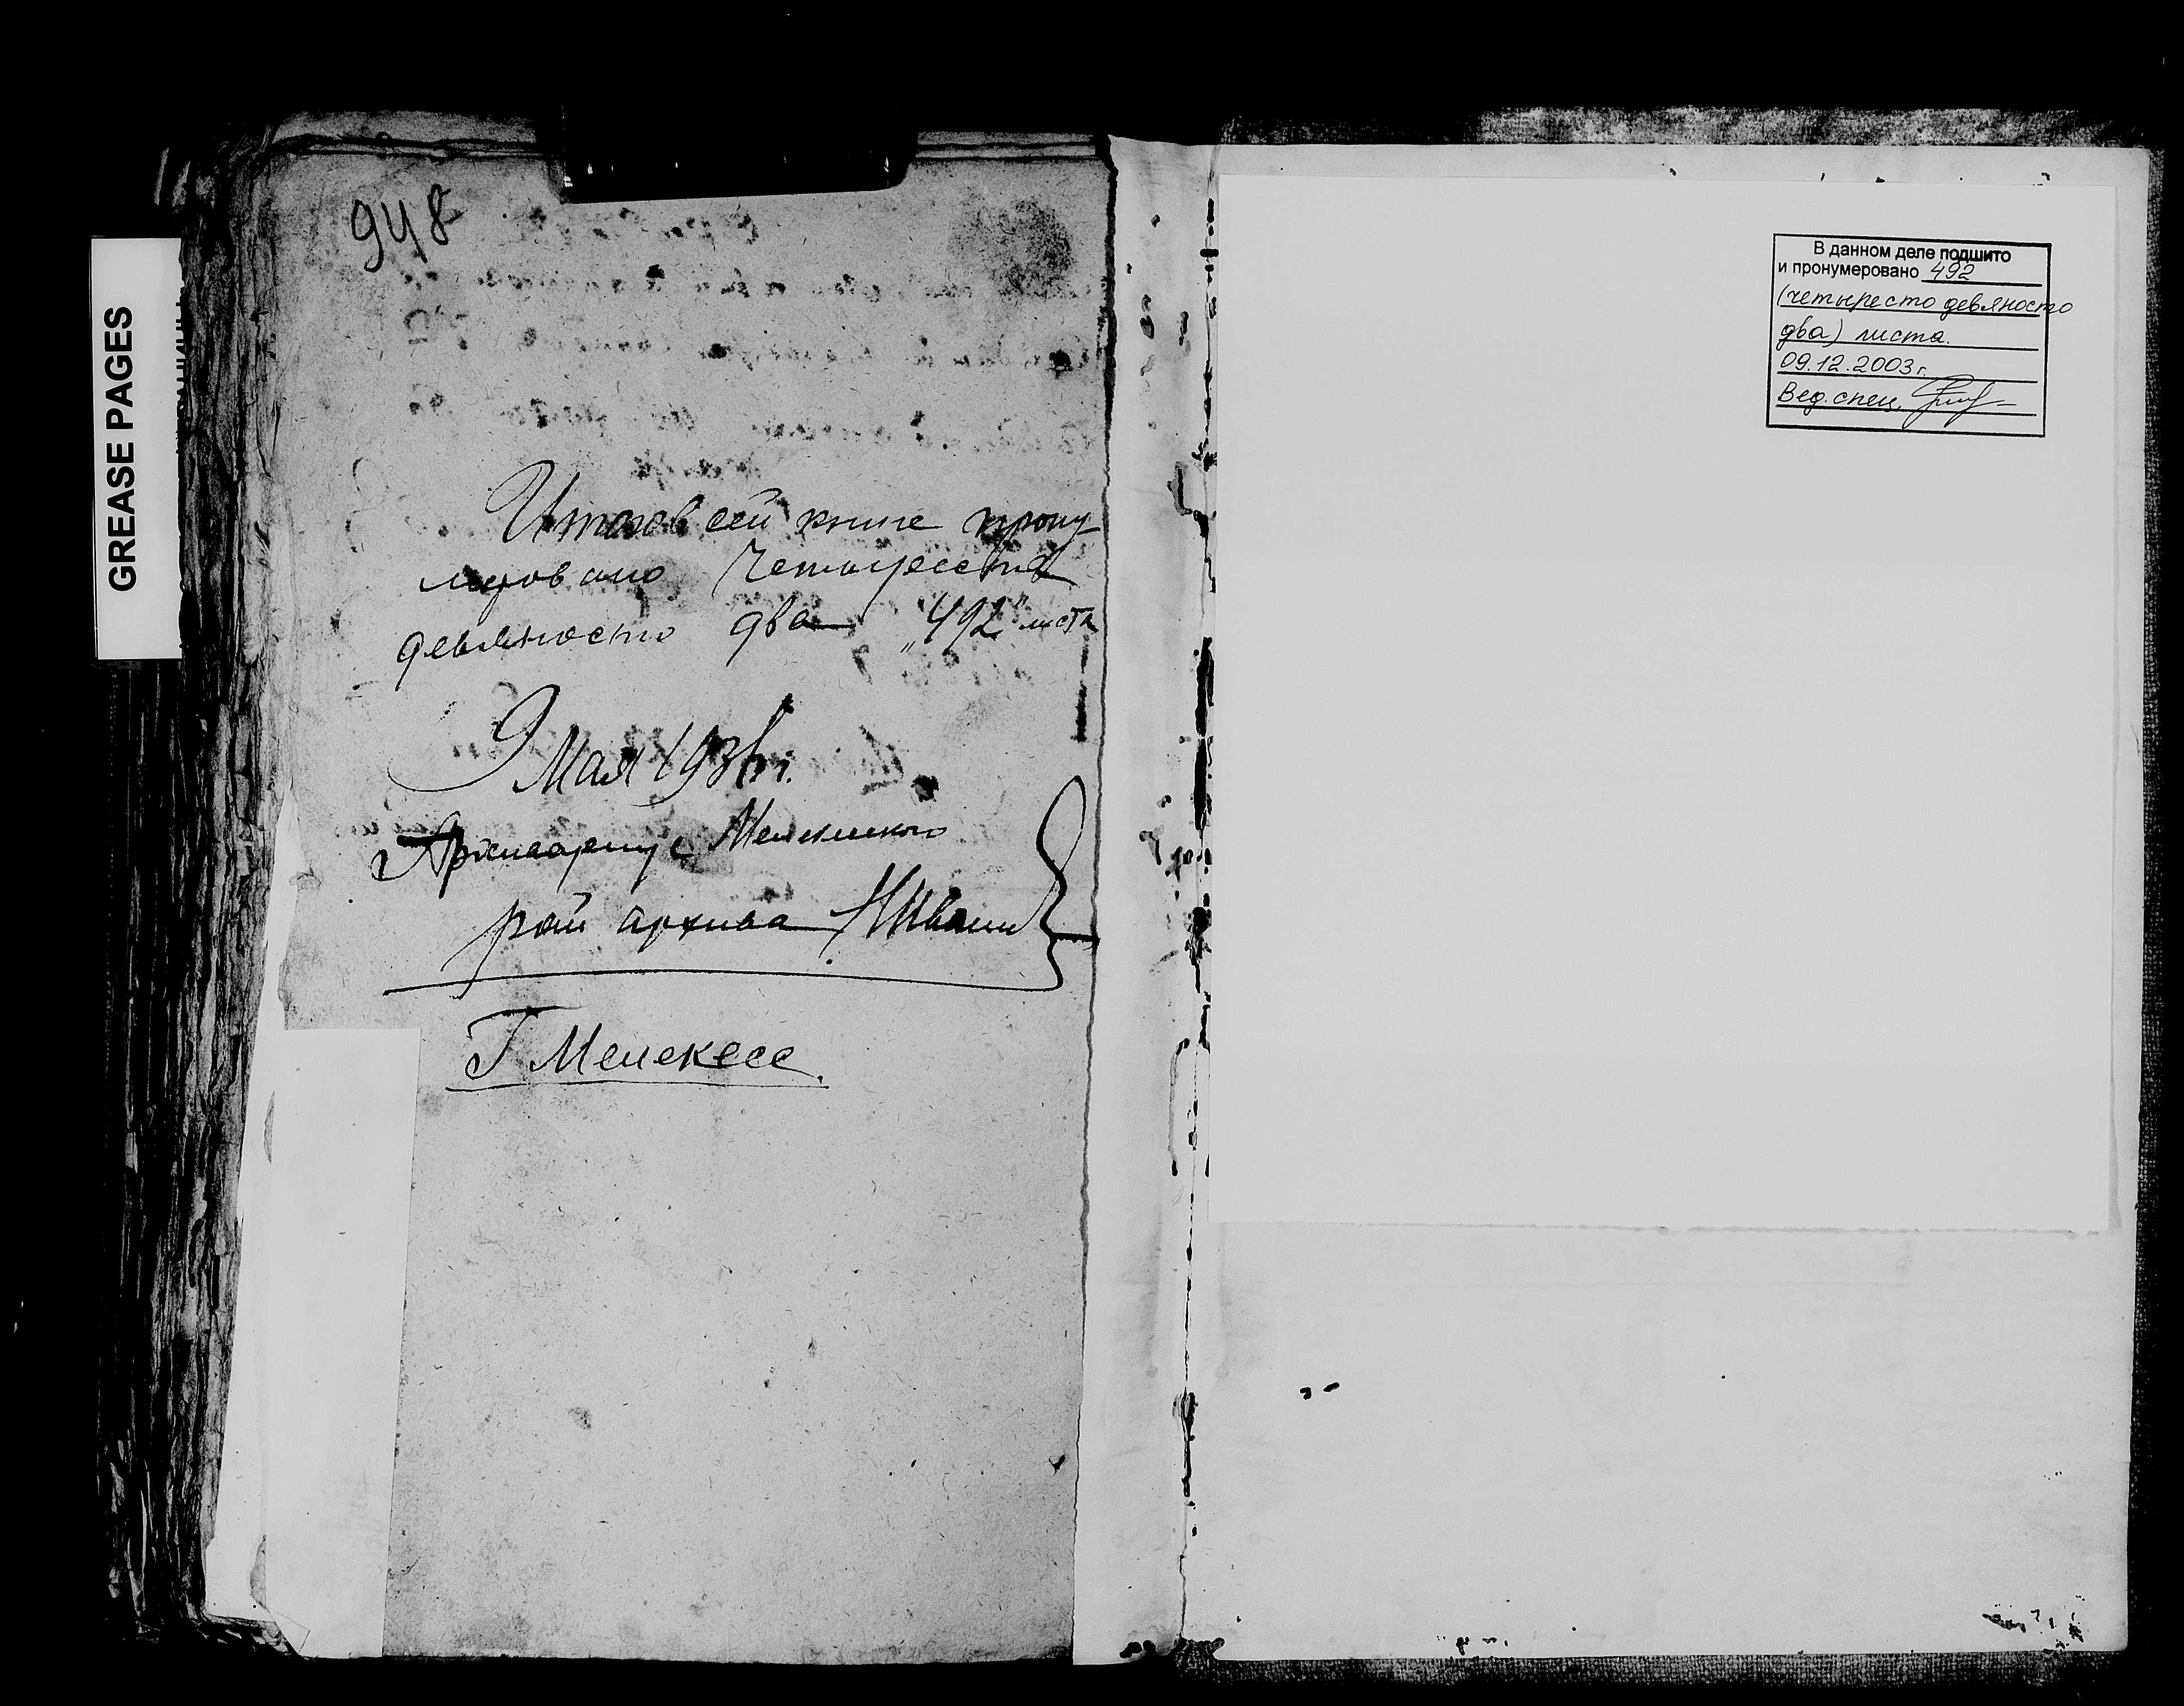 GREASE PAGES
948
Итого в сей книге прону
мировано Четыреста
девяносто два „492" листа
9 Мая 1936 г.
Архивариус Мелекесского
рай архива НИвани
Г Мелекесс.
В данном деле подшито
и пронумеровано 492
(четыресто девяносто
два) листа.
09.12.2003г.
Вед. спец.